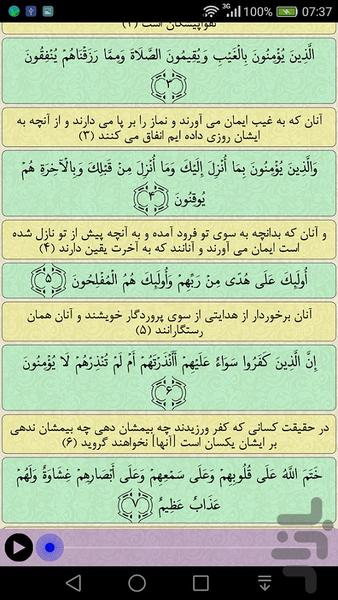 3G 100% 07:37
تقواپیشگان است (۲)
الَّذِينَ يُؤْمِنُونَ بِالْغَيْبِ وَيُقِيمُونَ الصَّلَاةَ وَمِمَّا رَزَقْنَاهُمْ يُنْفِقُونَ
﴿٣﴾
آنان که به غیب ایمان می آورند و نماز را بر پا می دارند و از آنچه به
ایشان روزی داده ایم انفاق می کنند (۳)
وَالَّذِينَ يُؤْمِنُونَ بِمَا أُنْزِلَ إِلَيْكَ وَمَا أُنْزِلَ مِنْ قَبْلِكَ وَبِالْآخِرَةِ هُمْ
يُوقِنُونَ ﴿۴﴾
و آنان که بدانچه به سوی تو فرود آمده و به آنچه پیش از تو نازل شده
است ایمان می آورند و آنانند که به آخرت یقین دارند (۴)
أُولَئِكَ عَلَى هُدًى مِنْ رَبِّهِمْ وَأُولَئِكَ هُمُ الْمُفْلِحُونَ ﴿۵﴾
آنان برخوردار از هدایتی از سوی پروردگار خویشند و آنان همان
رستگارانند (۵)
إِنَّ الَّذِينَ كَفَرُوا سَوَاءٌ عَلَيْهِمْ أَأَنْذَرْتَهُمْ أَمْ لَمْ تُنْذِرْهُمْ لَا يُؤْمِنُونَ
﴿۶﴾
در حقیقت کسانی که کفر ورزیدند چه بیمشان دهی چه بیمشان ندهی
بر ایشان یکسان است [آنها] نخواهند گروید (۶)
خَتَمَ اللَّهُ عَلَى قُلُوبِهِمْ وَعَلَى سَمْعِهِمْ وَعَلَى أَبْصَارِهِمْ غِشَاوَةٌ وَلَهُمْ
عَذَابٌ عَظِيمٌ ﴿٧﴾